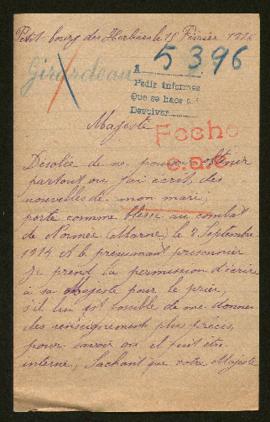 Petit-bourg des Herbiers le 15 Février 1916
Girardeau
A
5396
Pedir informes
Que se hace
Devolver
Majesté
Fecho
Désolée de ne pouvoir obtenir
partout où j'ai écrit, des
nouvelles de mon mari,
porté comme blessé au combat
de (Marne) le 8 Septembre
1914 et le présumant prisonnier
Je prend la permission d'écrire
à sa Majesté pour le prier,
s'il lui est possible de me donner
des renseignements plus précis,
pour savoir où il peut être
interné, Sachant que votre Majesté